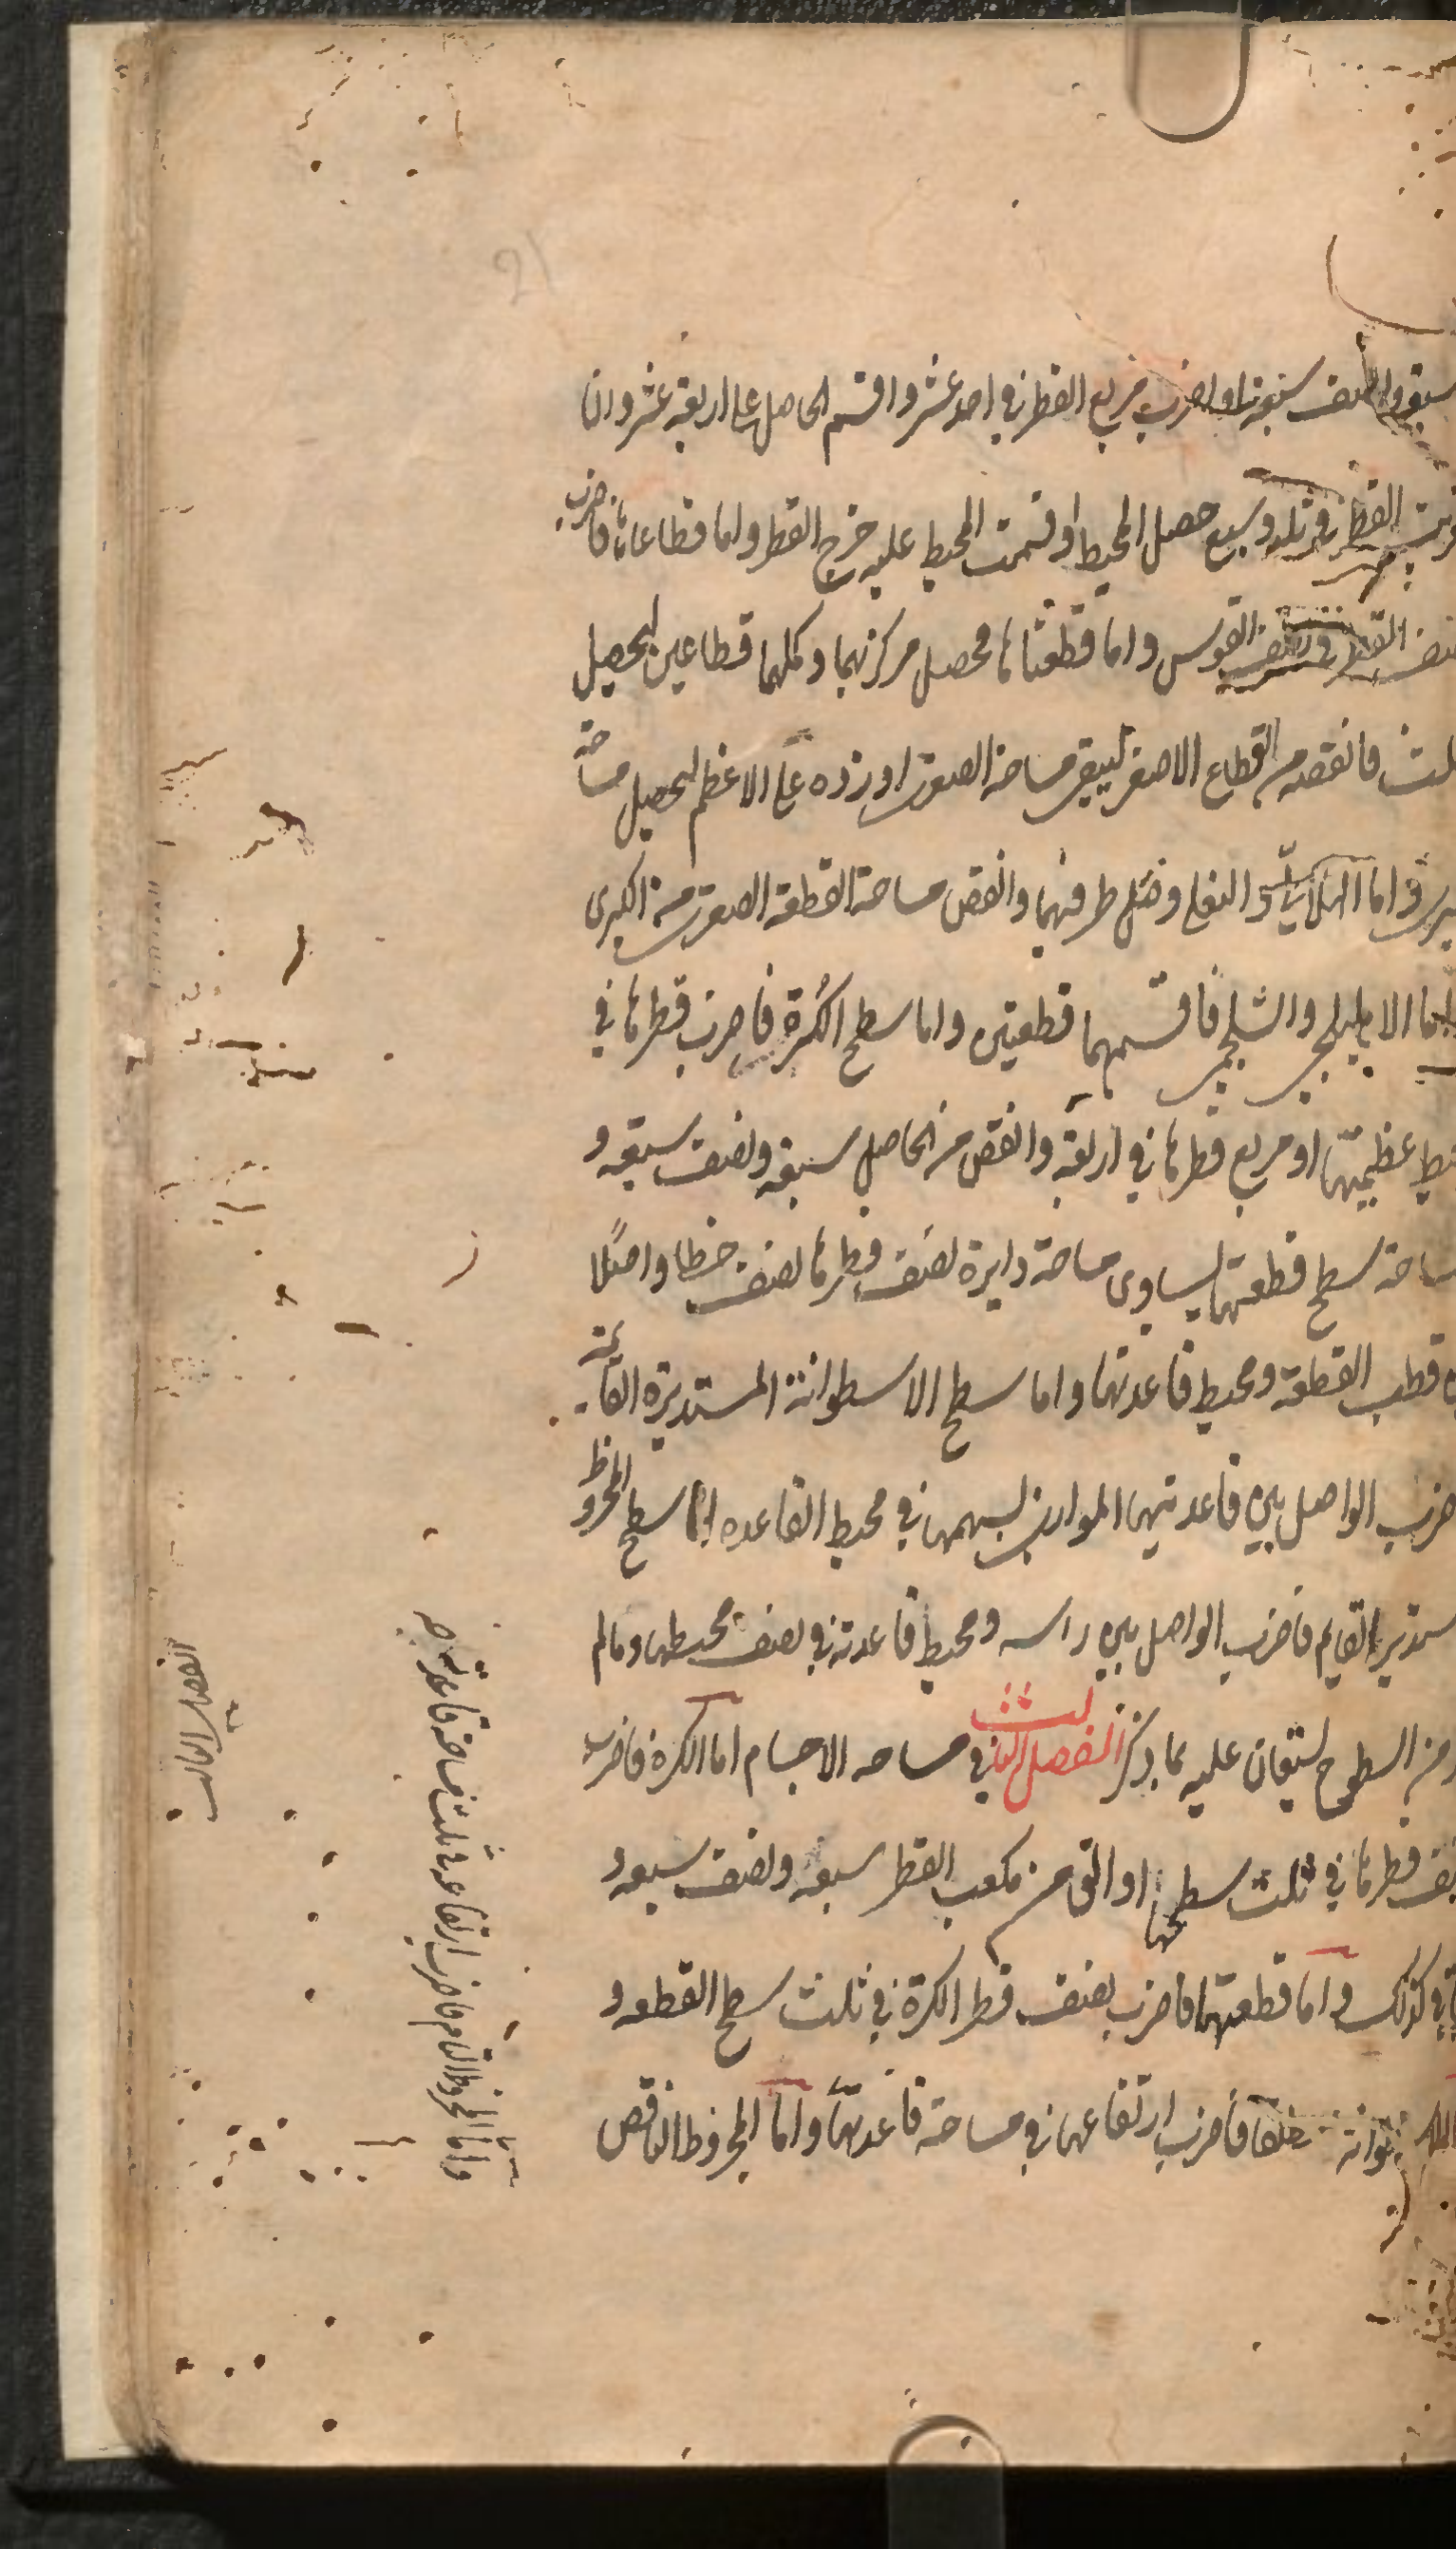 سبعه ونصف سبعه او اضرب مربع القطر في احد عشر واقسم الحاصل على اربعة عشر وان
ضربت القطر في ثلثة وسبع حصل المحيط او قسمت المحيط عليه خرج القطر واما قطاعاها فاضرب
نصف القطر في نصف القوس واما قطعتاها فحصل مركزيهما وكملهما قطاعين ليحصل
مثلث فانقصه من القطاع الاصغر ليبقى مساحة الصغرى او زده على الاعظم ليحصل مساحة
الكبرى واما الهلالي والنعلي فصل طرفيهما وانقص مساحة القطعة الصغرى من الكبرى
واما الاهليلجي والشلجمي فاقسمهما قطعتين واما سطح الكرة فاضرب قطرها في
محيط عظيمتها او مربع قطرها في اربعة وانقص من الحاصل سبعه ونصف سبعه و
مساحة سطح قطعتها يساوى مساحة دايرة نصف قطرها نصف خطا واصلا
قطب القطعة ومحيط قاعدتها واما سطح الاسطوانة المستديرة القائمة
فاضرب الواصل بين قاعدتيها الموازى لسهمها في محيط القاعده واما سطح المخروط
المستدير القايم فاضرب الواصل بين راسه ومحيط قاعدته في نصف محيطها ومالم
من السطوح يستعان عليه بما ذكر الفصل الثالث في مساحه الاجسام اما الكرة فاضرب
نصف قطرها في ثلث سطحها او الق من مكعب القطر سبعه ونصف سبعه و
كذلك واما قطعتها فاضرب نصف قطر الكرة في ثلث سطح القطعه و
مطلقا فاضرب ارتفاعها في مساحة قاعدتها واما المخروط الناقص
واما المخروط التام فاضرب ارتفاعه في ثلث مساحة قاعدته
الفصل الثالث